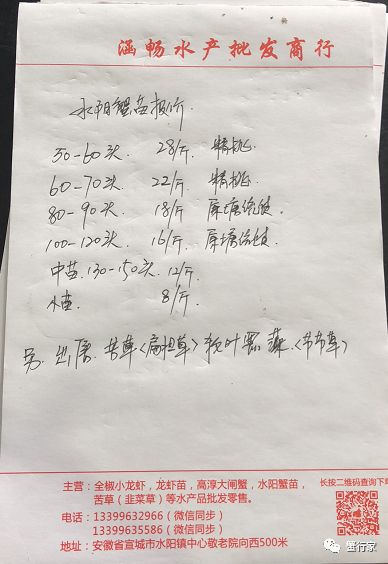 涵畅水产批发商行
水阳蟹苗报价
50-60头 28/斤 精挑.
60-70头 22/斤 精挑.
80-90头 18/斤 原塘统货.
100-120头 16/斤 原塘统货.
中苗.130-150头.12/斤.
小苗. 8/斤.
另.出售.苦草<扁担草>轮叶黑藻.<节节草>
主营：全椒小龙虾，龙虾苗，高淳大闸蟹，水阳蟹苗，
苦草（韭菜草）等水产品批发零售。
电话：13399632966（微信同步）
13399635586（微信同步）
地址：安徽省宣城市水阳镇中心敬老院向西500米
长按二维码查询下单
蟹行家